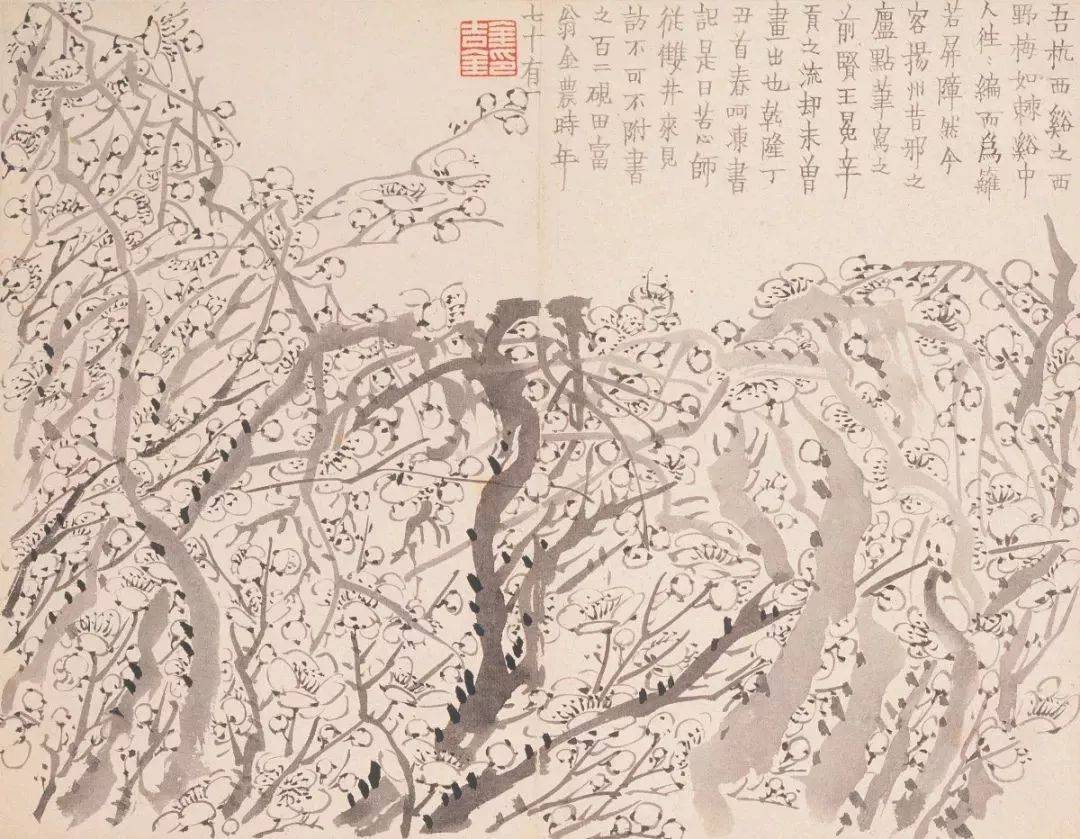 吾杭西谿之西
野梅如棘谿中
人往〻編而爲籬
若屏障然今
客揚州昔邪之
廬點筆寫之
前賢王冕辛
貢之流却未曾
畫出也乾隆丁
丑首春呵凍書
記是日苦心師
從雙井來見
訪不可不附書
之百二硯田富
翁金農時年
七十有一
金吉金印